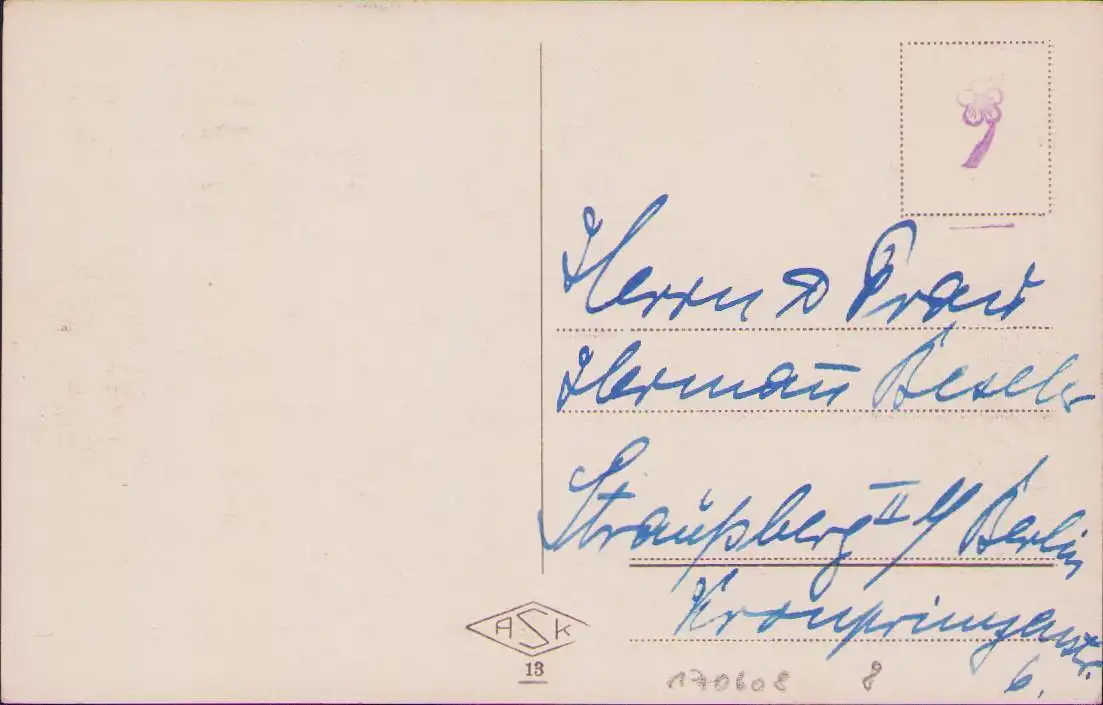 Herrn & Frau
Herman̄ Beseler
Straußberg II b/ Berlin
Kronprinzenstr.
6.
ASK
13
170608 8